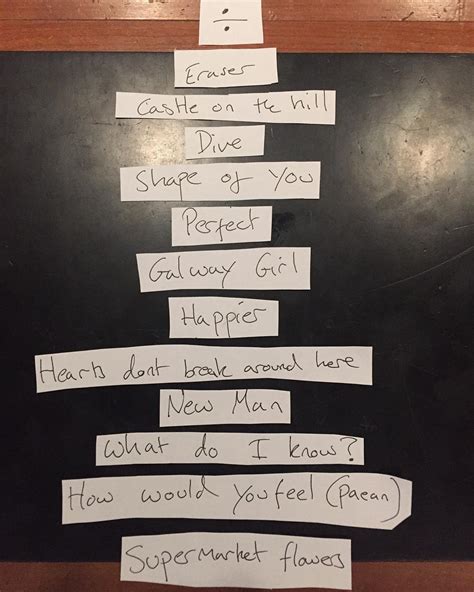 ÷
Eraser
Castle on the hill
Dive
Shape of You
Perfect
Galway Girl
Happier
Hearts dont break around here
New Man
What do I know?
How would you feel (paean)
Supermarket flowers